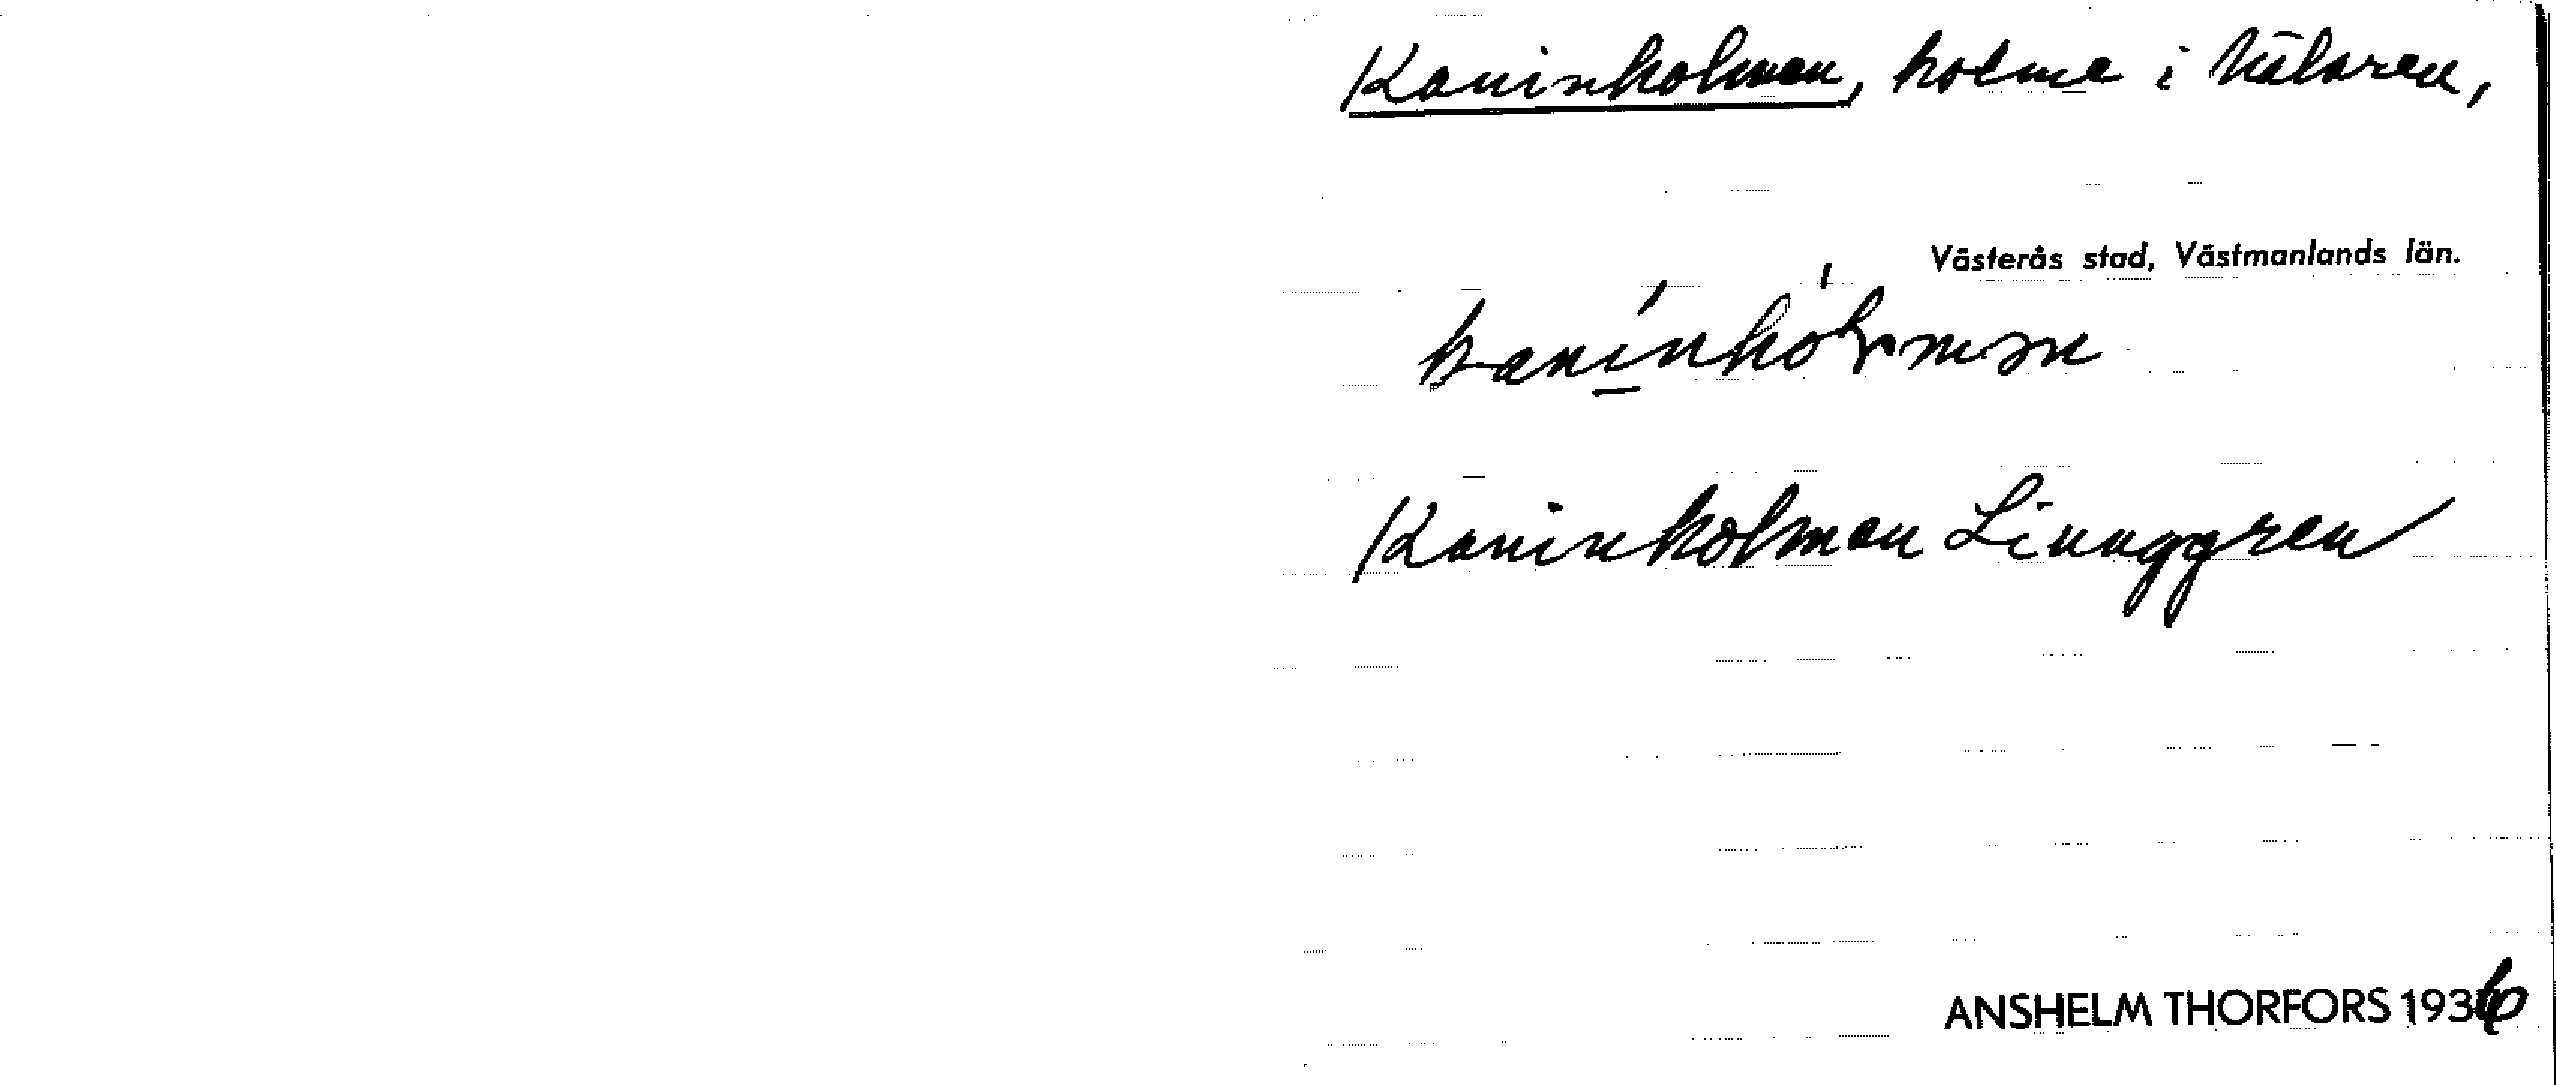 Kaninholmen, holme i Mälaren,
Västerås stad, Västmanlands län.
kanინhólmən
Kaninholmen Linnggren
ANSHELM THORFORS 1936